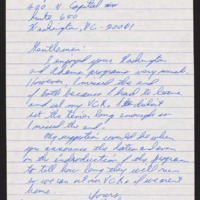 490 N Capitol NW
Suite 650
Washington, DC - 20001
Gentlemen:
I enjoyed your Washington
and Adams programs very much.
However, I missed the end
of both because I had to leave
and set my VCR. I didn't
set the timer long enough so
I missed the end.
My suggestion would be when
you announce the dates & even
on the introduction of the program
to tell how long they will run
so we can set our VCR's if we aren't
home.
Yours,